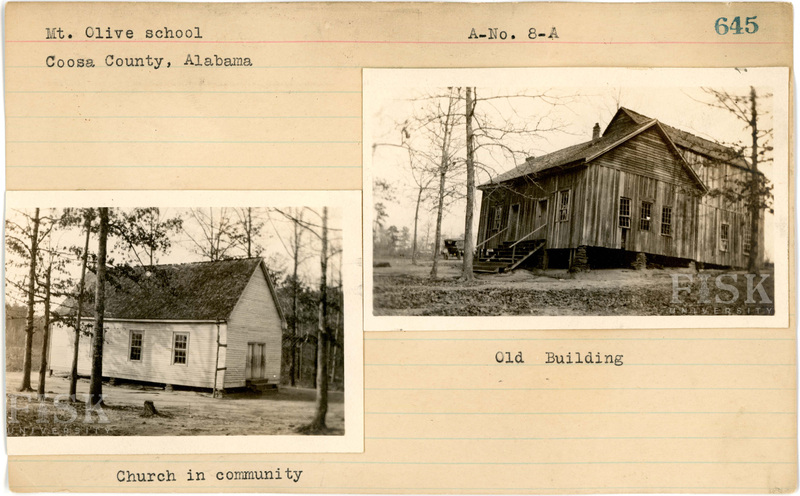 Mt. Olive school
A-No. 8-A
645
Coosa County, Alabama
FISK
UNIVERSITY
Old Building
FISK
UNIVERSITY
Church in community